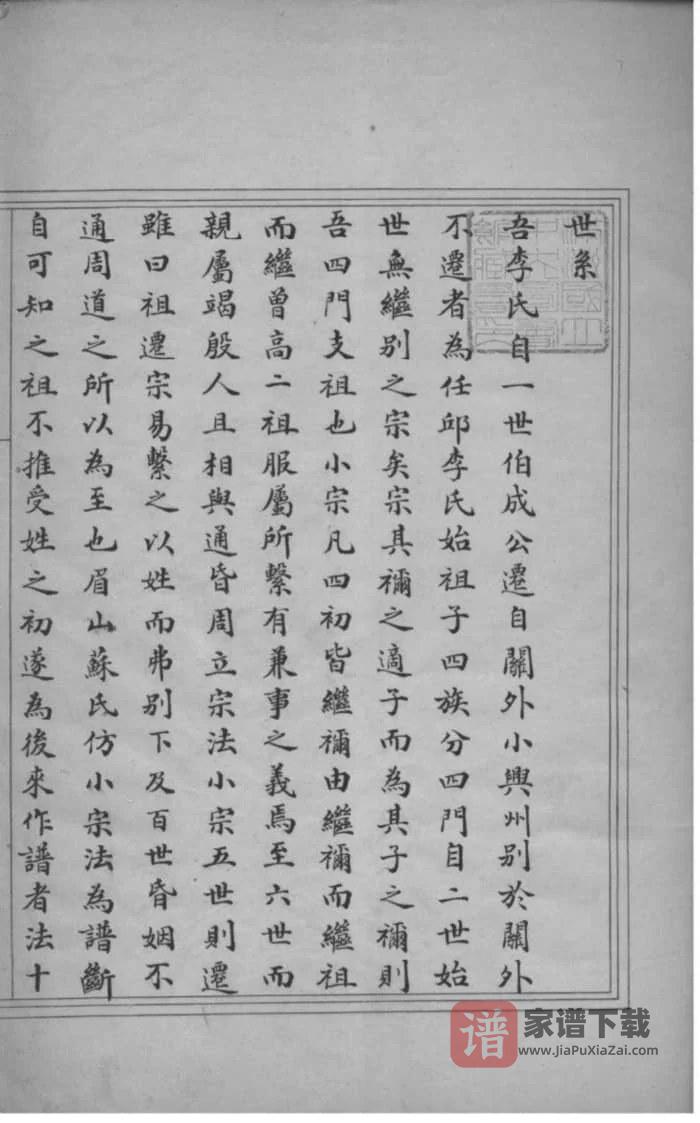 世系
吾李氏自一世伯成公遷自關外小興州别於關外
不遷者為任邱李氏始祖子四族分四門自二世始
世無繼别之宗矣宗其禰之適子而為其子之禰則
吾四門支祖也小宗凡四初皆繼禰由繼禰而繼祖
而繼曾高二祖服屬所繫有兼事之義焉至六世而
親屬竭殷人且相與通昏周立宗法小宗五世則遷
雖曰祖遷宗易繫之以姓而弗别下及百世昏姻不
通周道之所以為至也眉山蘇氏仿小宗法為譜斷
自可知之祖不推受姓之初遂為後來作譜者法十
谱 家谱下载
www.JiaPuXiaZai.com